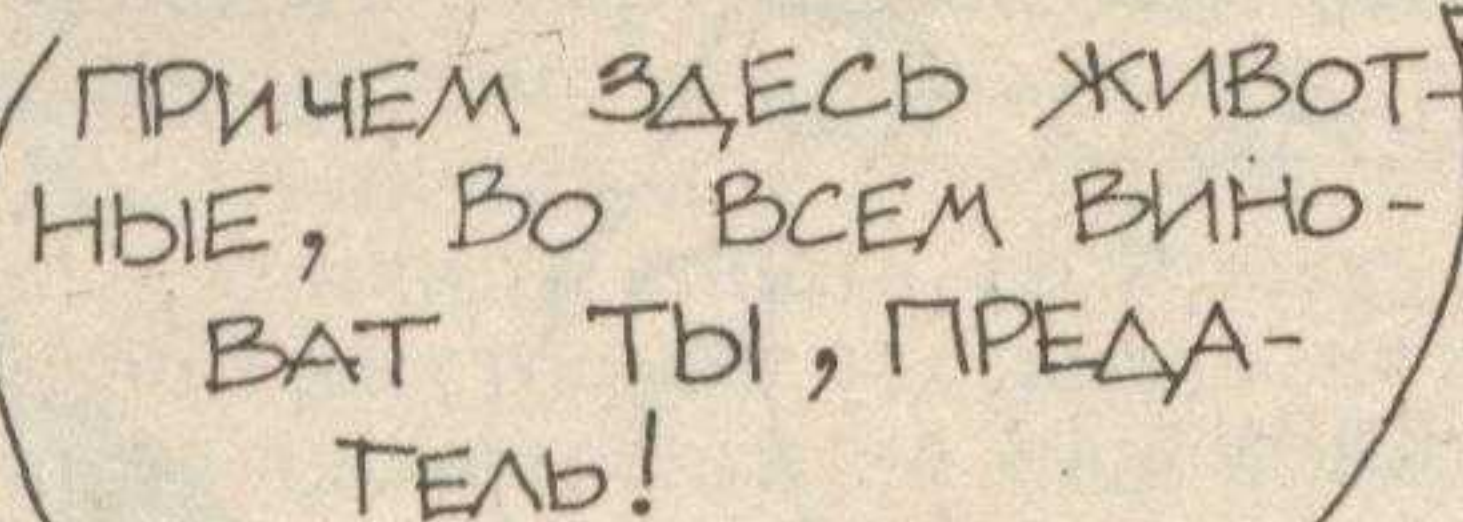 ПРИЧЕМ ЗДЕСЬ ЖИВОТ-
НЫЕ, ВО ВСЕМ ВИНО-
ВАТ ТЫ, ПРЕДА-
ТЕЛЬ!